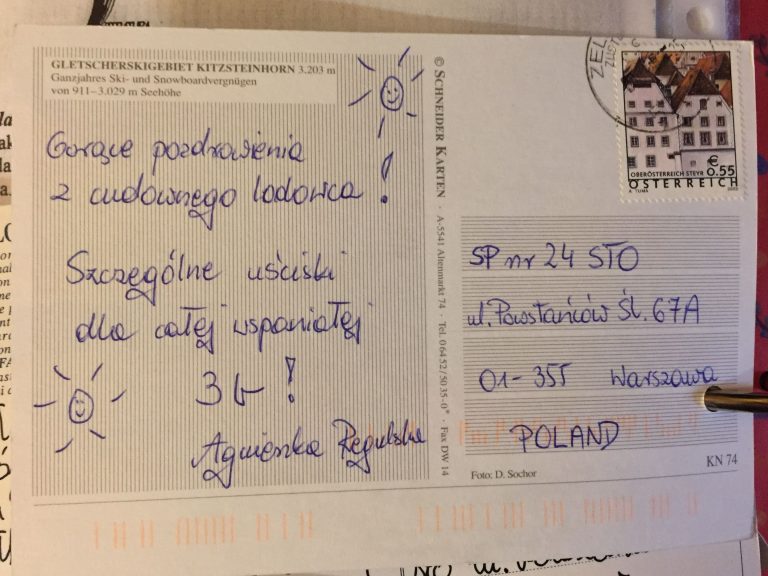 GLETSCHERSKIGEBIET KITZSTEINHORN 3.203 m
Ganzjahres Ski- und Snowboardvergnügen
von 911–3.029 m Seehöhe
Gorące pozdrowienia
z cudownego lodowca!
Szczególne uściski
dla całej wspaniałej
3b!
Agnieszka Regulska
© SCHNEIDER KARTEN · A-5541 Altenmarkt 74 · Tel. 0 64 52 / 50 35-0* · Fax DW 14
ZEL
€
0.55
OBERÖSTERREICH STEYR
ÖSTERREICH
SP nr 24 STO
ul. Powstańców Śl. 67A
01-355 Warszawa
POLAND
Foto: D. Sochor
KN 74